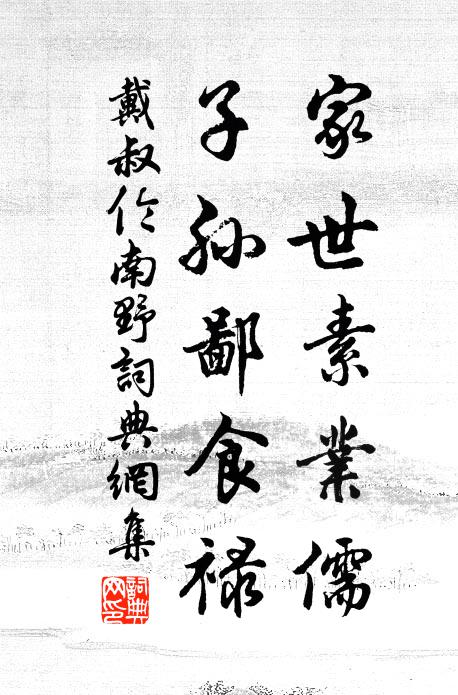 家世素業儒
子孫鄙食祿
戴叔伦南野詞典網集
詞典网印